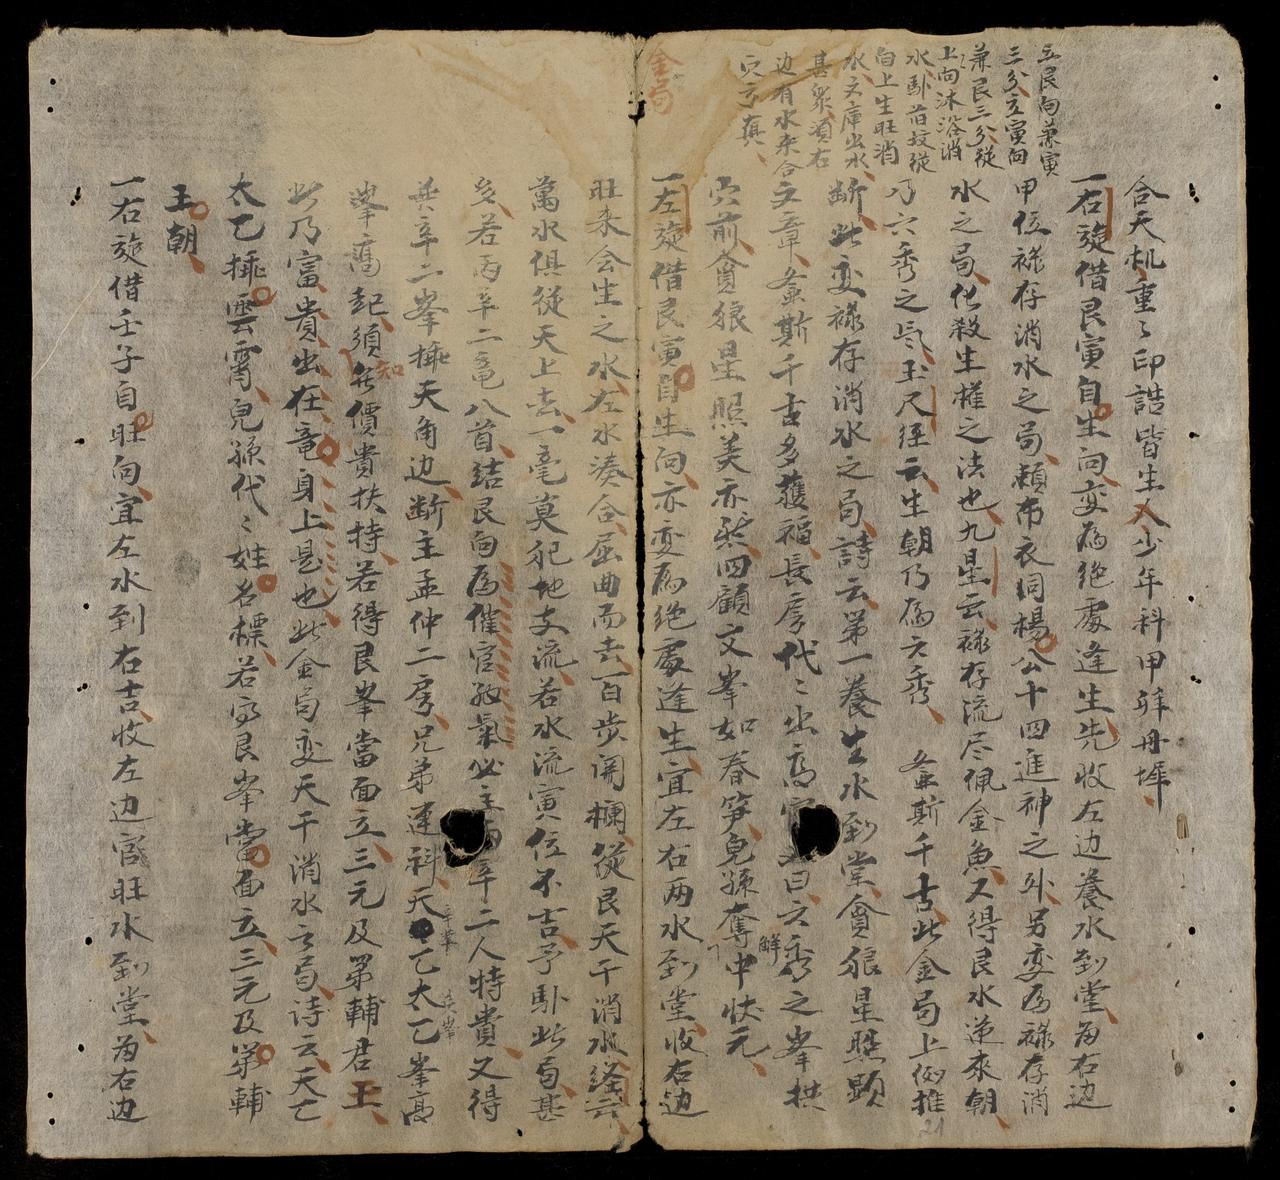 立艮向兼寅
三分立寅向
兼艮三分從
上向沐浴消
水卧首坟從
向上生旺消
水文庫出水
甚眾須右
边有水來合
穴方真
金局
合天机重々印誥皆生入少年科甲拜丹墀
一右旋借艮寅自生向变為絶處逢生先收左边養水到堂為右边
甲位祿存消水之局頼布衣同楊公十四進神之外另变為祿存消
水之局化殺生權之法也九星云祿存流尽佩金魚又得艮水逆來朝
乃六秀之氣玉尺經云生朝乃為六秀 螽斯千古此金局上仿推
断此变祿存消水之局詩云第一養生水到堂貪狼星照顯
文章螽斯千古多獲福長房代々出高官 曰六秀之峯拱
穴前貪狼星照美亦然四顧文峯如春笋兒孫奪中状元
解
一左旋借艮寅自生向亦变為絶處逢生宜左右两水到堂收右边
旺來会生之水左水湊合屈曲而去一百步開欄從艮天干消水経云
萬水俱従天上去一毫莫犯地支流若水流寅位不吉予卧此局甚
多若丙辛二竜入首结艮向為催官 氣必主丙辛二人特貴又得
巽辛二峯挿天角边断主孟仲二房兄弟連科天乙太乙峯高
辛峯
巽峯
峯高起須知無價貴扶持若得艮峯當面立三元及第輔君王
此乃富貴出在竜身上是也此金局变天干消水之局诗云天乙
太乙挿雲霄兒孫代々姓名標若高艮峯當面立三元及第輔
王朝
一右旋借壬子自旺向宜左水到右吉收左边官旺水到堂為右边
21